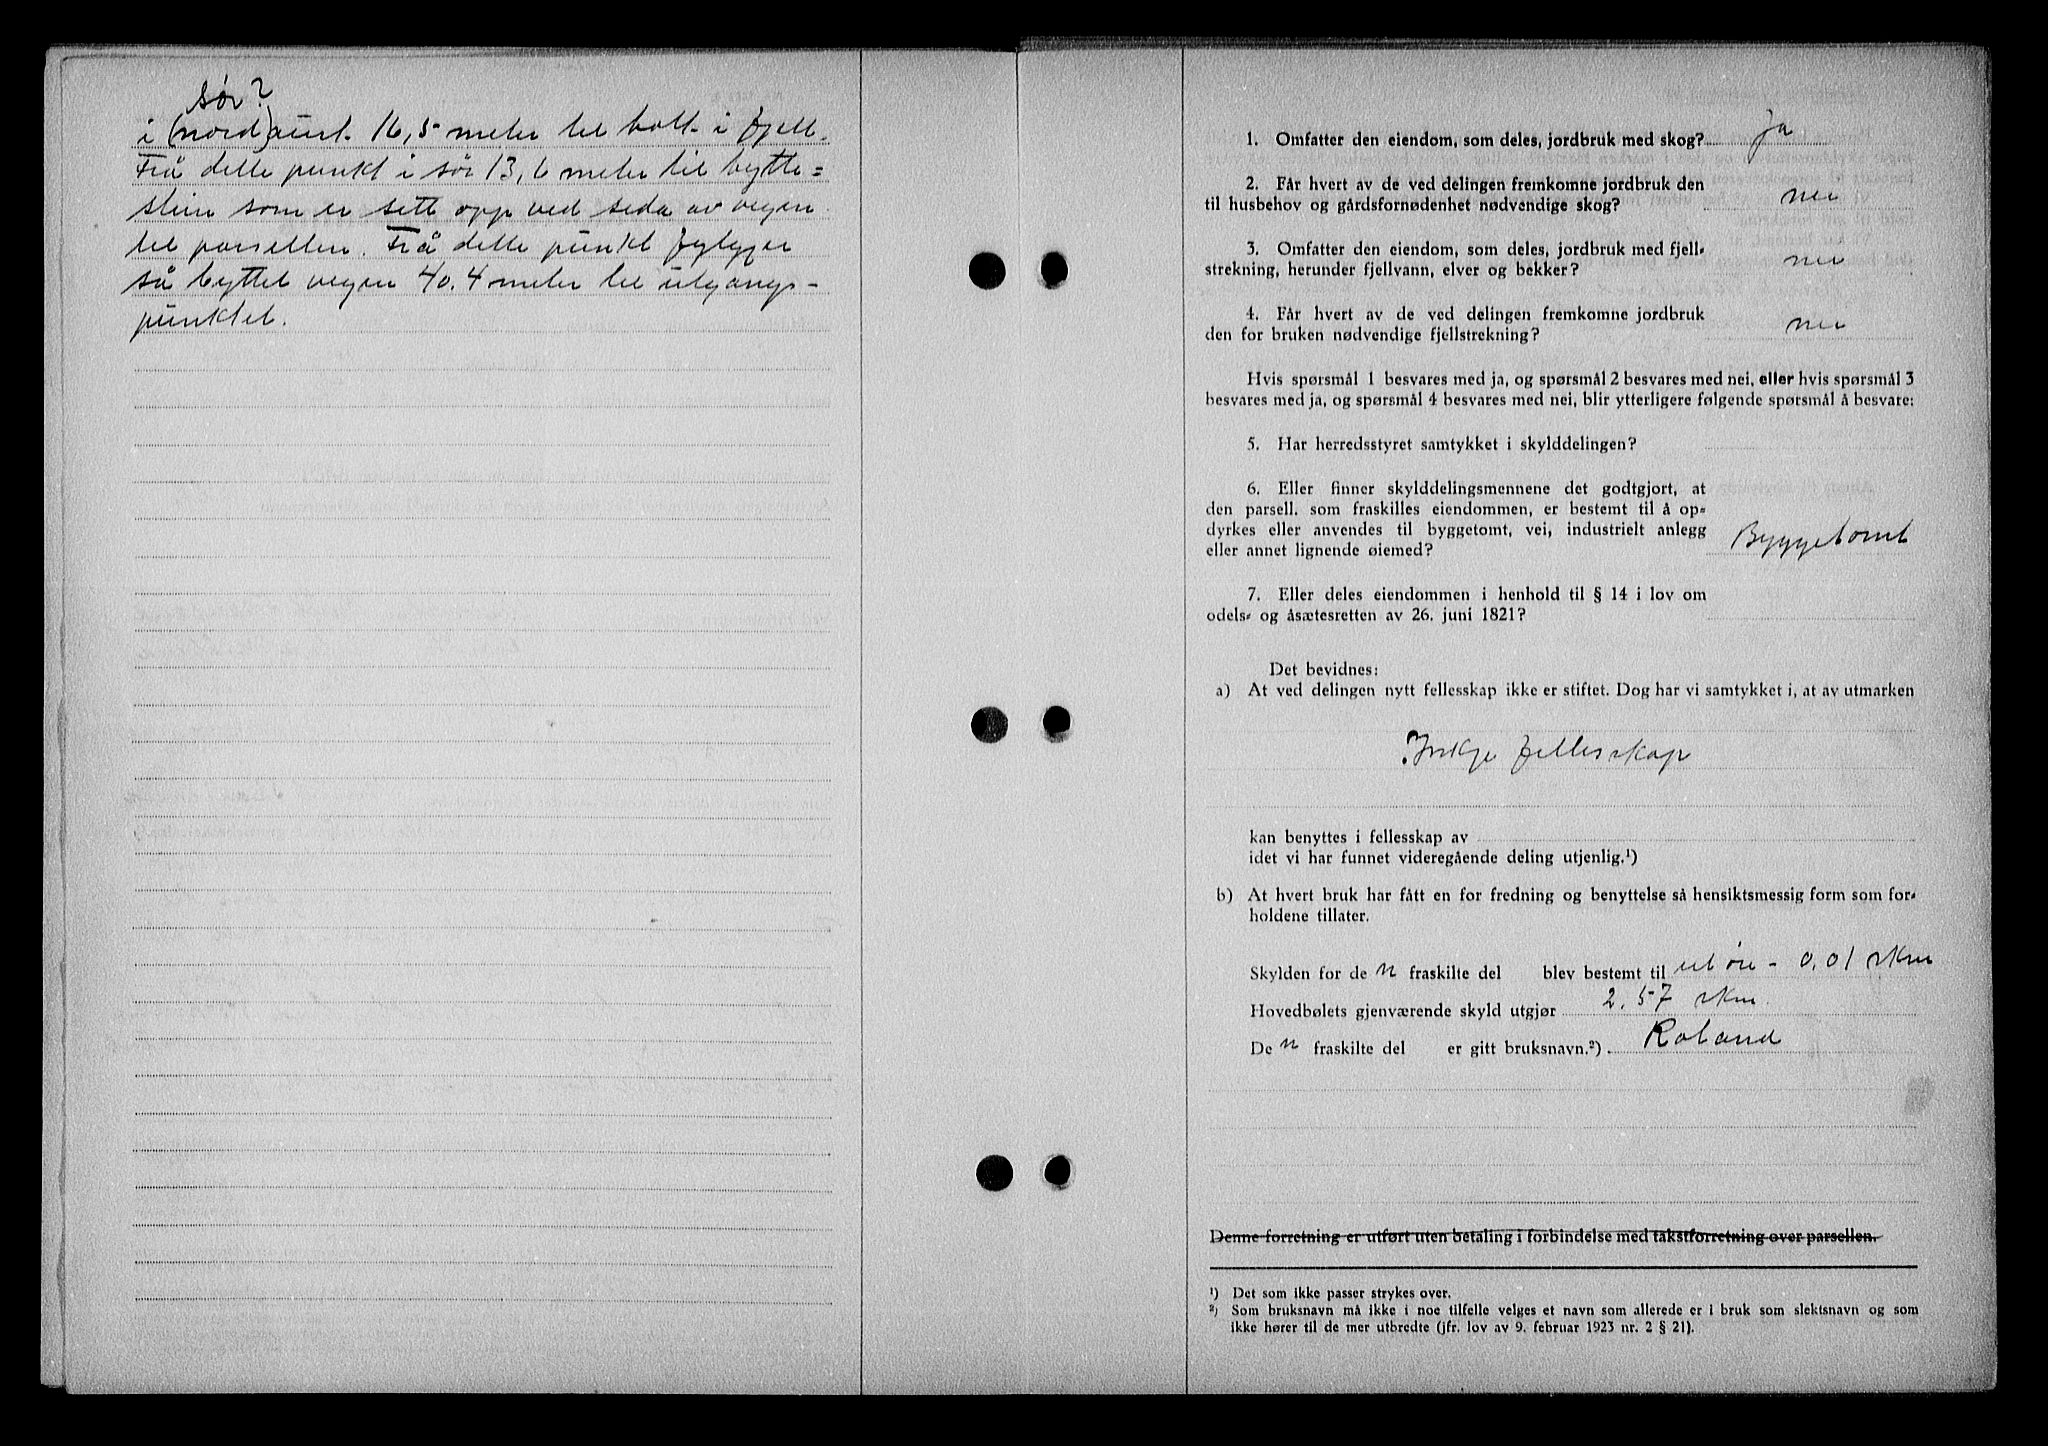 sør?
i (nord)aust. 16,5 meter til bolt i fjell.
Frå dette punkt i sør 13,6 meter til bytte=
stein som er sett opp ved sida av vegen
til parsellen. Frå dette punkt fylgjer
så byttet vegen 40.4 meter til utgangs-
punktet.
1. Omfatter den eiendom, som deles, jordbruk med skog? ja
2. Får hvert av de ved delingen fremkomne jordbruk den
til husbehov og gårdsfornødenhet nødvendige skog? nei
3. Omfatter den eiendom, som deles, jordbruk med fjell-
strekning, herunder fjellvann, elver og bekker? nei
4. Får hvert av de ved delingen fremkomne jordbruk
den for bruken nødvendige fjellstrekning? nei
Hvis spørsmål 1 besvares med ja, og spørsmål 2 besvares med nei, eller hvis spørsmål 3
besvares med ja, og spørsmål 4 besvares med nei, blir ytterligere følgende spørsmål å besvare:
5. Har herredsstyret samtykket i skylddelingen?
6. Eller finner skylddelingsmennene det godtgjort, at
den parsell. som fraskilles eiendommen, er bestemt til å op-
dyrkes eller anvendes til byggetomt, vei, industrielt anlegg
eller annet lignende øiemed? Byggetomt
7. Eller deles eiendommen i henhold til § 14 i lov om
odels- og åsætesretten av 26. juni 1821?
Det bevidnes:
a) At ved delingen nytt fellesskap ikke er stiftet. Dog har vi samtykket i, at av utmarken
Inkje fellesskap
kan benyttes i fellesskap av
idet vi har funnet videregående deling utjenlig.¹)
b) At hvert bruk har fått en for fredning og benyttelse så hensiktsmessig form som for-
holdene tillater.
Skylden for de n fraskilte del blev bestemt til eit øre - 0,01 skm
Hovedbølets gjenværende skyld utgjør 2,57 skm.
De n fraskilte del er gitt bruksnavn.²) Roland
Denne forretning er utført uten betaling i forbindelse med takstforretning over parsellen.
¹) Det som ikke passer strykes over.
²) Som bruksnavn må ikke i noe tilfelle velges et navn som allerede er i bruk som slektsnavn og som
ikke hører til de mer utbredte (jfr. lov av 9. februar 1923 nr. 2 § 21).